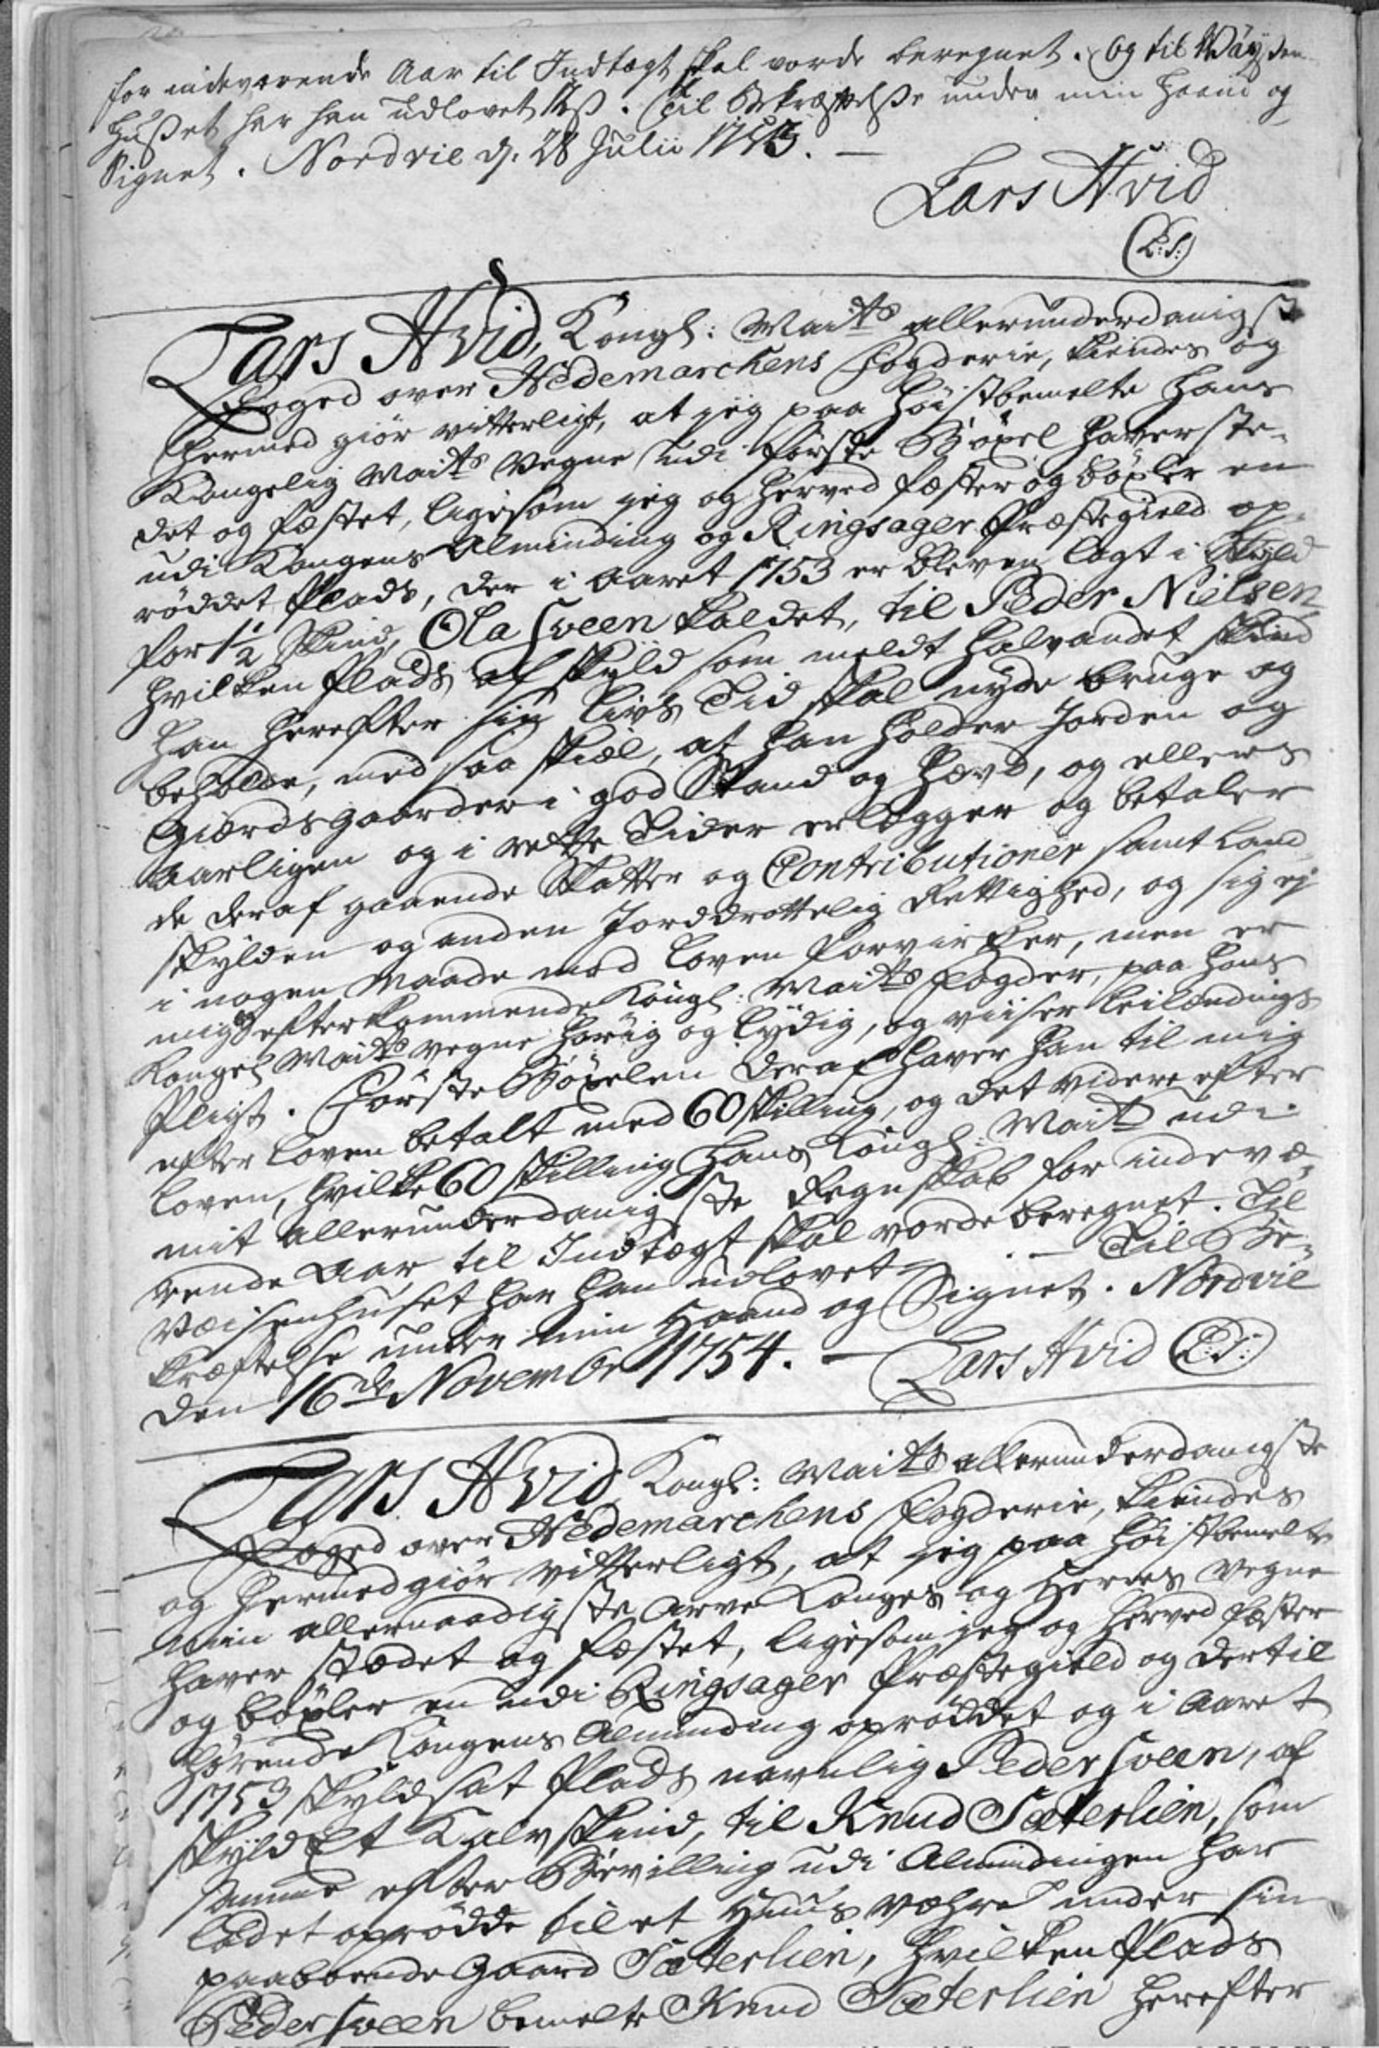 for indeværende Aar til Indtægt skal vorde beregnet. Og til Wäysen
Hußet har han udlovet ß. Til Bekræftelße under min Haand og
Signet. Nordvie d. 28 Julii 1753. —
Lars Hvid
(L:S:)
Lars Hvid, Kongl: Maits allerunderdanigste
Foged over Hedemarchens Fogderie, kiendes og
hermed giör vitterligt, at jeg paa höistbemelte Hans
Kongelig Maits Vegne udi förste Böxel haver ste-
det og fæstet, ligesom jeg og herved fæster og böxler en
udi Kongens Alminding og Ringsager Præstegield op-
röddet Plads, der i Aaret 1753 er bleven lagt i Skyld
for 1½ Skind, Ola Sveen kaldet, til Peder Nielsen
hvilken Plads af Skyld som meldt halvandet Skind
han herefter sin Livs Tid skal nyde bruge og
beholde, med saa skiæl, at han holder Jorden og
Giærdsgaarder i god Stand og Hævd, og ellers
aarligen og i rette Tider erlægger og betaler
de deraf gaaende Skatter og Contributioner samt Land
skylden og anden Jorddrottelig Rettighed, og sig ej
i nogen Maade mod Loven forvircker, men er
mig og efterkommende Kongl: Maits Fogder, paa Hans
Kongel Maits Vegne hörig og lydig, og viiser Leilændings
Pligt. Förste Böxelen deraf haver han til mig
efter Loven betalt med 60 skilling, og det videre efter
Loven, hvilke 60 skilling Hans Kongl: Mait udi
mit allerunderdanigste Regnskab for indevæ-
rende Aar til Indtægt skal vorde beregnet. Til
Væisenhuset har han udlovet — . — Til Be-
kræftelse under min Haand og Signet. Nordvie
den 16de Novembr 1754. — Lars Hvid (L:S:)
Lars Hvid Kongl: Maits allerunderdanigste
Foged over Hedemarchens Fogderie, kiendes
og hermed giör vitterligt, at jeg paa höistbemelte
min allernaadigste Arve Konges og Herres Vegne
haver stædet og fæstet, ligesom jeg og herved fæster
og böxler en udi Ringsager Præstegield og dertil
hörende Kongens Alminding opröddet og i Aaret
1753 skyldsat Plads navnlig Peder Sveen, af
skyld Et Kalvskind, til Knud Sæterlien, som
samme efter Bevilling udi Almindingen har
ladet oprödde til et Huus være under sin
paaboende Gaard Sæterlien, hvilken Plads
Peder Sveen bemelte Knud Sæterlien herefter